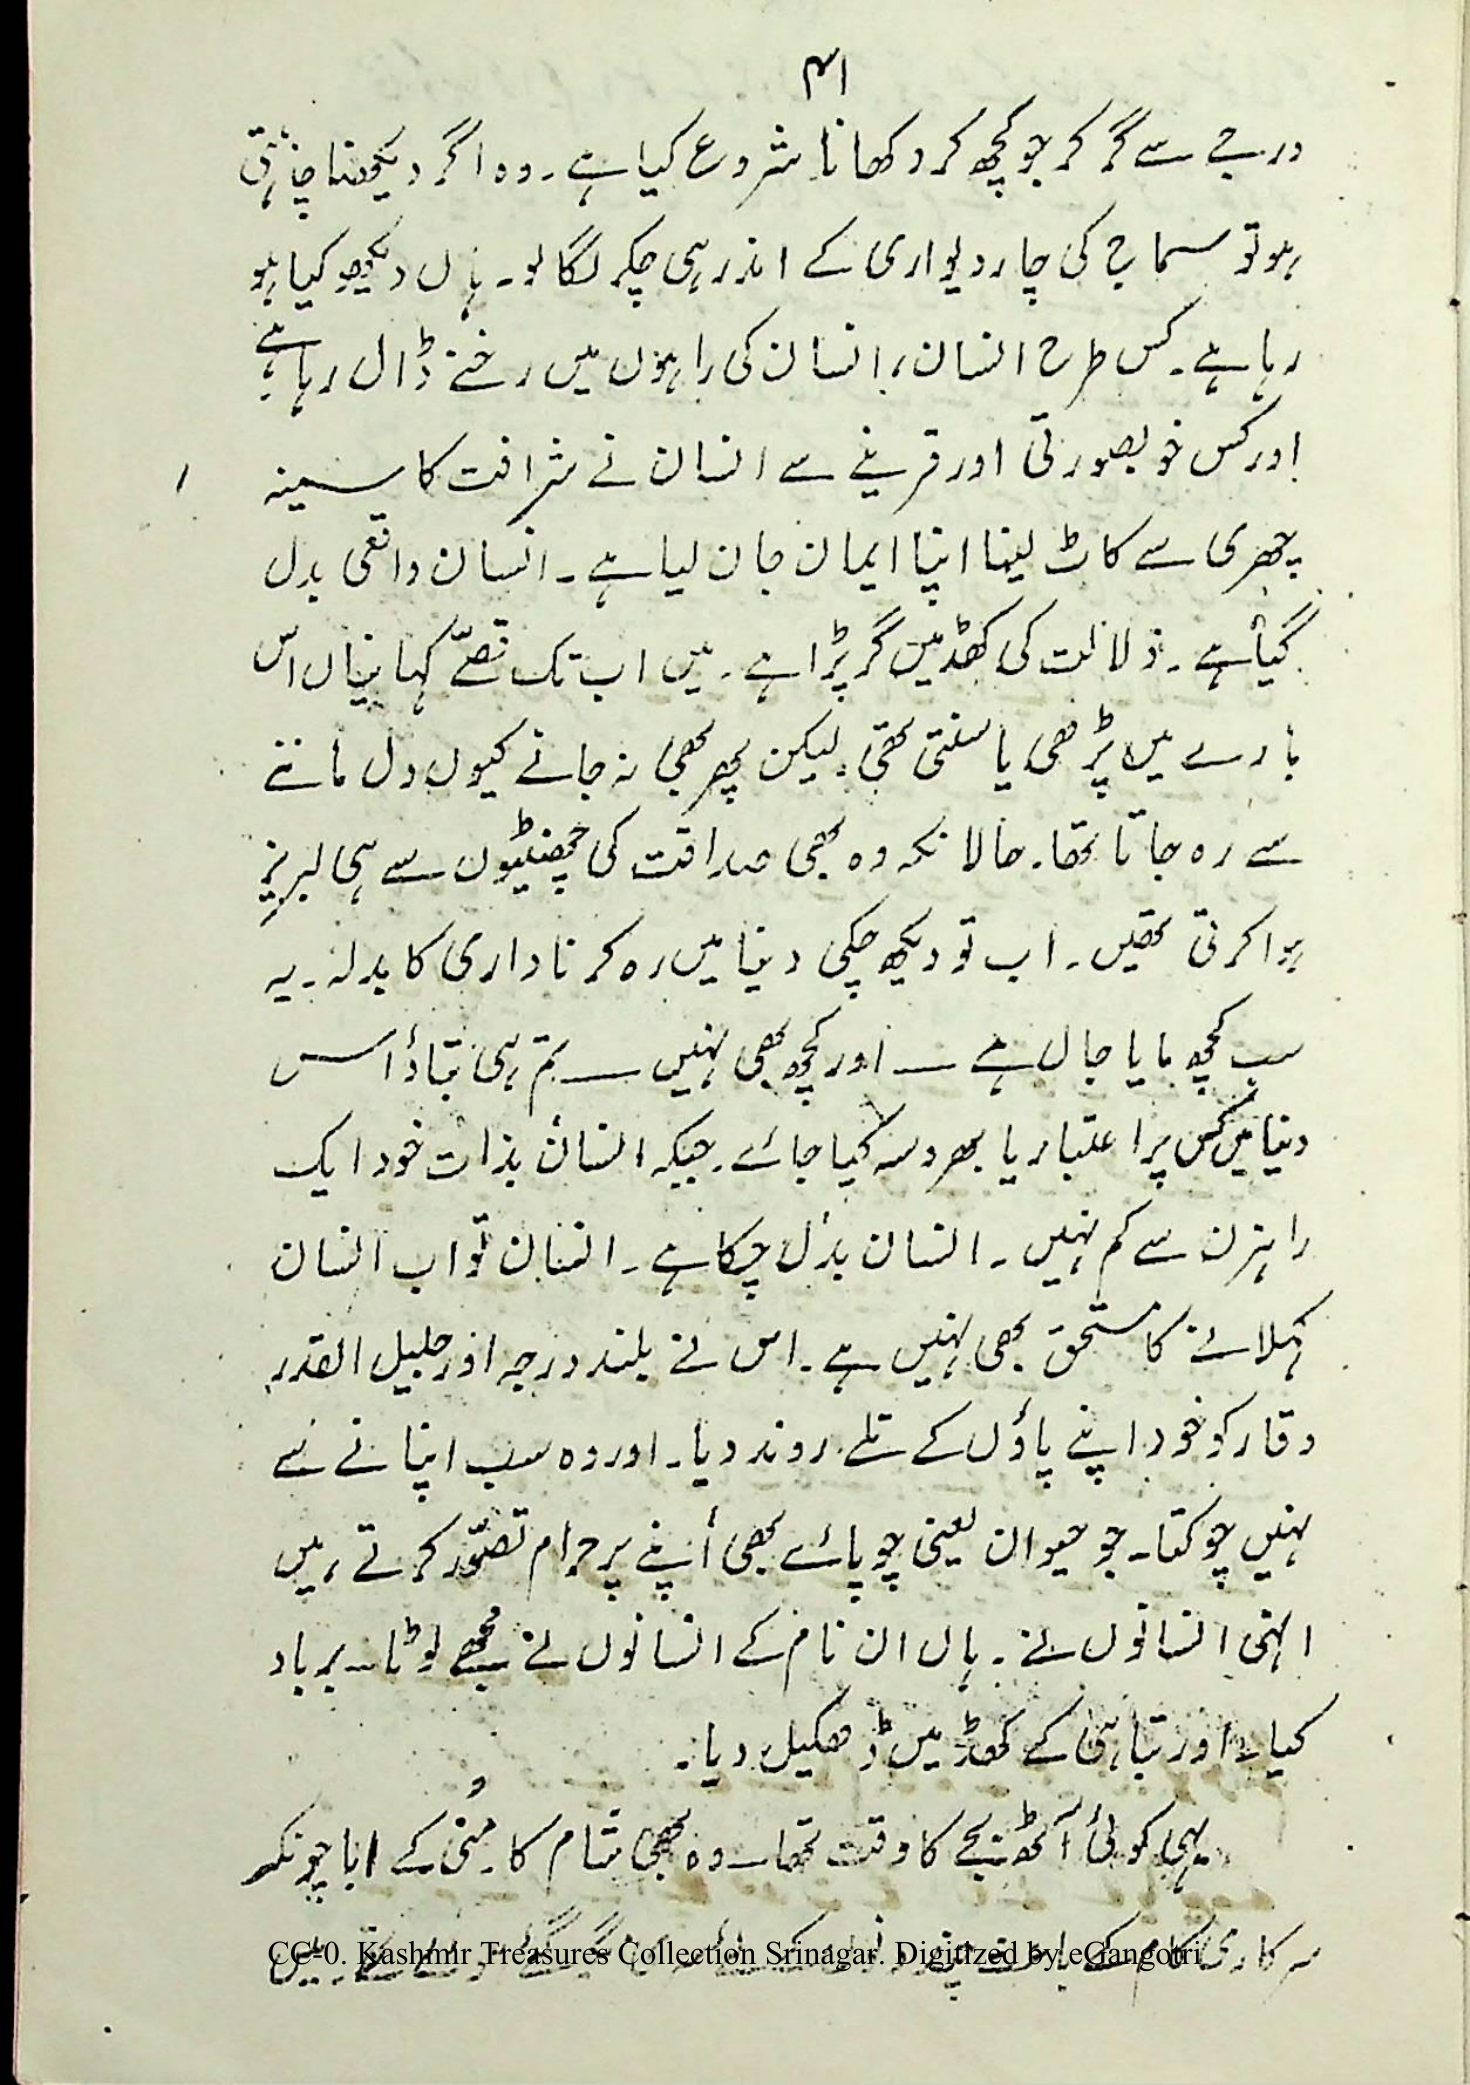 ۴۱
درجے سے گر کر جو کچھ کر دکھانا شروع کیا ہے۔ وہ اگر دیکھنا چاہتی
ہو تو سماج کی چار دیواری کے اندر ہی چکر لگا لو۔ ہاں دیکھو کیا ہو
رہا ہے۔ کس طرح انسان، انسان کی راہوں میں رخنے ڈال رہا ہے
اور کس خوبصورتی اور قرینے سے انسان نے شرافت کا سینہ
چھری سے کاٹ لینا اپنا ایمان جان لیا ہے۔ انسان واقعی بدل
گیا ہے۔ ذلالت کی کھڈ میں گر پڑا ہے۔ میں اب تک قصّے کہانیاں اس
بارے میں پڑھی یا سنتی تھی۔ لیکن پھر بھی نہ جانے کیوں دل ماننے
سے رہ جاتا تھا۔ حالانکہ وہ بھی صداقت کی چھنٹیوں سے ہی لبریز
ہوا کرتی تھیں۔ اب تو دیکھ چکی دنیا میں رہ کر ناداری کا بدلہ۔ یہ
سب کچھ مایا جال ہے ــ اور کچھ بھی نہیں ــ تم ہی بتاؤ اس
دنیا میں کس پر اعتبار یا بھروسہ کیا جائے۔ جبکہ انسان بذات خود ایک
راہزن سے کم نہیں۔ انسان بدل چکا ہے۔ انسان تو اب انسان
کہلانے کا مستحق بھی نہیں ہے۔ اس نے بلند درجہ اور جلیل القدر
وقار کو خود اپنے پاؤں کے تلے روند دیا۔ اور وہ سب اپنانے سے
نہیں چوکتا۔ جو حیوان یعنی چوپائے بھی اپنے پر حرام تصوّر کرتے ہیں
انہی انسانوں نے۔ ہاں ان نام کے انسانوں نے مجھے لوٹا۔ برباد
کیا۔ اور تباہی کے کھڈ میں ڈھکیل دیا۔
یہی کوئی آٹھ بجے کا وقت تھا۔ وہ بھی شام کا۔ مُنی کے ابا چونکہ
سرکاری کام کے
CC-0. Kashmir Treasures Collection Srinagar. Digitized by eGangotri